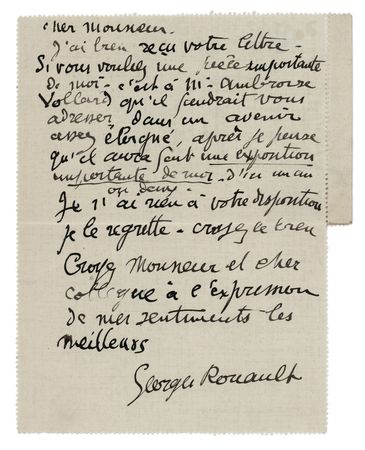 Cher Monsieur.
J'ai bien reçu votre lettre -
Si vous voulez une pièce importante
de moi - c'est à M. Ambroise
Vollard qu'il faudrait vous
adresser dans un avenir
assez éloigné, après je pense
qu'il aura fait une exposition
importante de moi. d'ici un an
ou deux.
Je n'ai rien à votre disposition
je le regrette - croyez le bien
Croyez Monsieur et cher
collègue à l'expression
de mes sentiments les
meilleurs
Georges Rouault